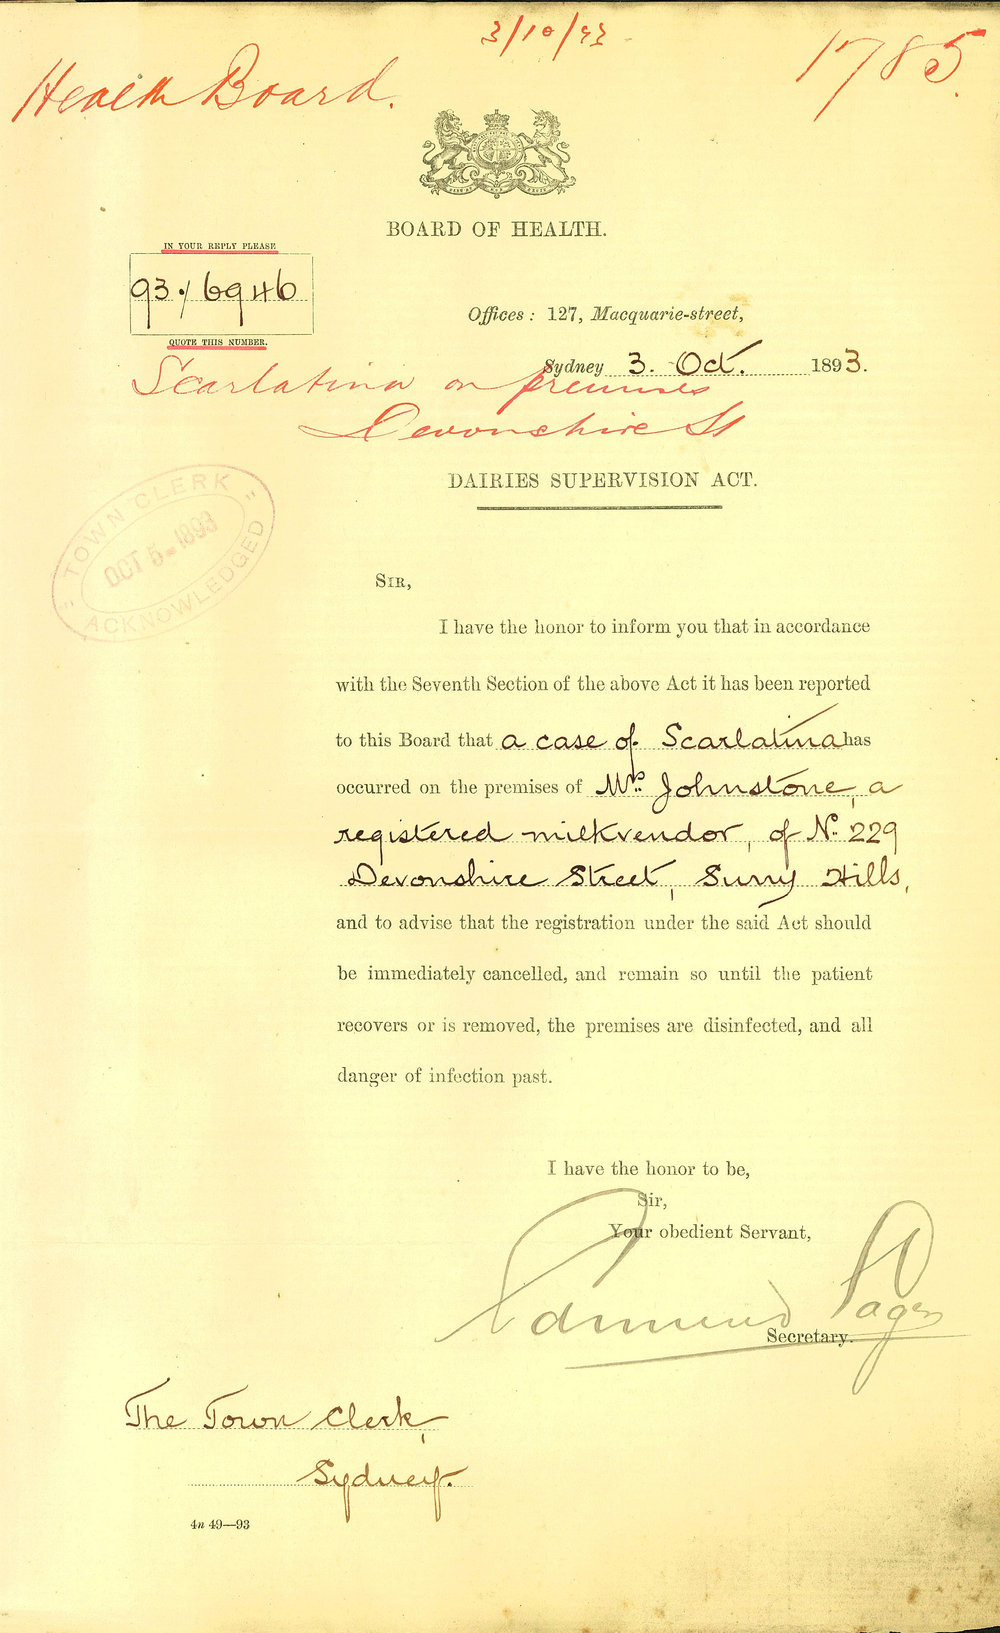 3/10/93
Health Board.
1785
BOARD OF HEALTH.
IN YOUR REPLY PLEASE
93/6946
QUOTE THIS NUMBER.
Offices: 127, Macquarie-street,
Sydney 3. Oct. 1893.
Scarlatina on premises
Devonshire St
DAIRIES SUPERVISION ACT.
TOWN CLERK
OCT 5-1893
ACKNOWLEDGED
SIR,
I have the honor to inform you that in accordance
with the Seventh Section of the above Act it has been reported
to this Board that a case of Scarlatina has
occurred on the premises of Mrs. Johnstone, a
registered milkvendor, of No. 229
Devonshire Street, Surry Hills,
and to advise that the registration under the said Act should
be immediately cancelled, and remain so until the patient
recovers or is removed, the premises are disinfected, and all
danger of infection past.
I have the honor to be,
Sir,
Your obedient Servant,
Edmund Sager
Secretary.
The Town Clerk,
Sydney.
4n 49—93